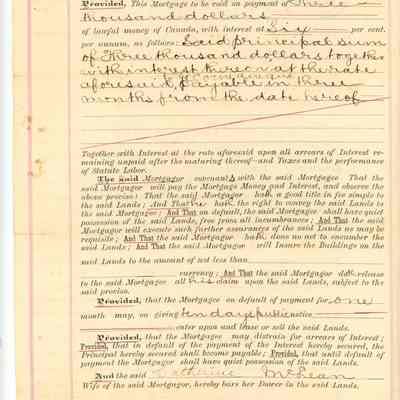 Provided, This Mortgage to be void on payment of Three
thousand dollars
of lawful money of Canada, with interest at Six per cent.
per annum, as follows: Said principal sum
of Three thousand dollars together
with interest thereon at the rate
aforesaid, payable in three
months from the date hereof
Together with Interest at the rate aforesaid upon all arrears of Interest re-
maining unpaid after the maturing thereof—and Taxes and the performance
of Statute Labor.
The said Mortgagor covenants with the said Mortgagee That the
said Mortgagor will pay the Mortgage Money and Interest, and observe the
above proviso: That the said Mortgagor hath a good title in fee simple to
the said Lands; And That he hath the right to convey the said Lands to
the said Mortgagee; And That on default, the said Mortgagee shall have quiet
possession of the said Lands, free from all incumbrances; And That the said
Mortgagor will execute such further assurances of the said Lands as may be
requisite; And That the said Mortgagor hath done no act to encumber the
said Lands; And That the said Mortgagor will Insure the Buildings on the
said Lands to the amount of not less than
currency; And That the said Mortgagor doth release
to the said Mortgagee all his claim upon the said Lands, subject to the
said proviso.
Provided, that the Mortgagee on default of payment for one
month may, on giving ten days public notice
enter upon and lease or sell the said Lands.
Provided, that the Mortgagee may distrain for arrears of Interest;
Provided, that in default of the payment of the Interest hereby secured, the
Principal hereby secured shall become payable; Provided, that until default of
payment the Mortgagor shall have quiet possession of the said Lands.
And the said Catherine McLean
Wife of the said Mortgagor, hereby bars her Dower in the said Lands.